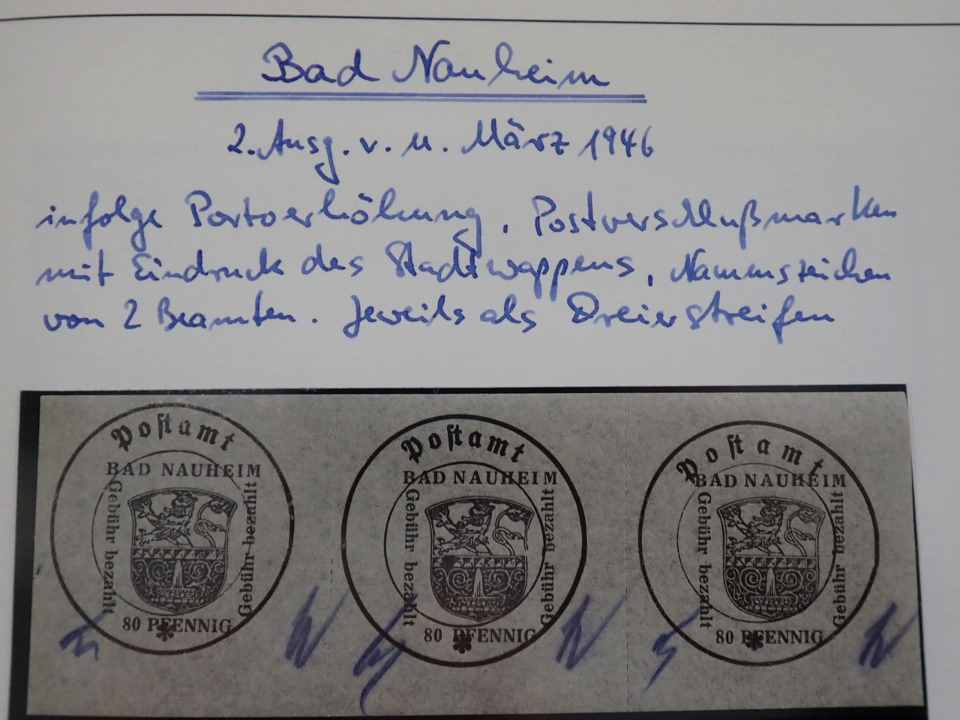 Bad Nauheim
2. Ausg. v. 11. März 1946
infolge Portoerhöhung. Postverschlußmarken
mit Eindruck des Stadtwappens, Namenszeichen
von 2 Beamten. Jeweils als Dreierstreifen
Postamt
BAD NAUHEIM
Gebühr bezahlt
Gebühr bezahlt
80 PFENNIG
Postamt
BAD NAUHEIM
Gebühr bezahlt
Gebühr bezahlt
80 PFENNIG
Postamt
BAD NAUHEIM
Gebühr bezahlt
Gebühr bezahlt
80 PFENNIG